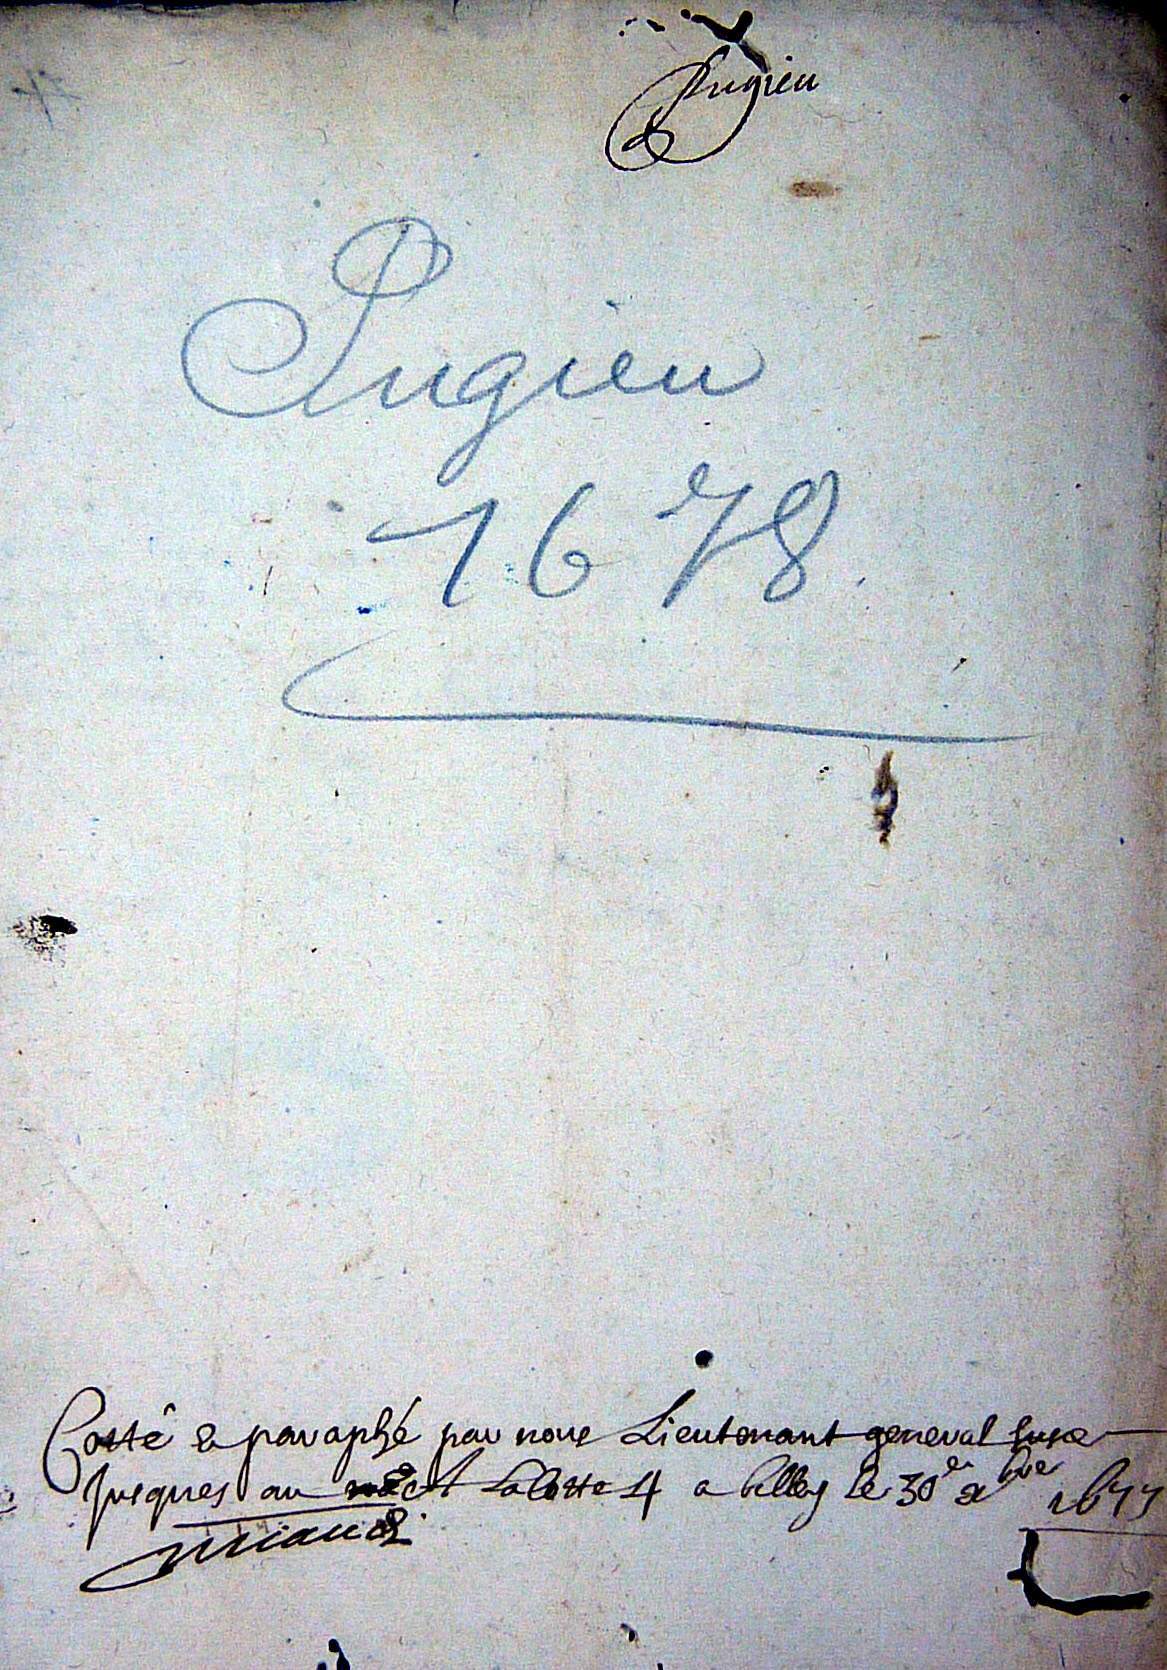 Pugieu
Pugieu
1678
Cotté & paraphé par nous Lieutenant general
Jusques au la cotte 4 a belley le 30e xbre 1677